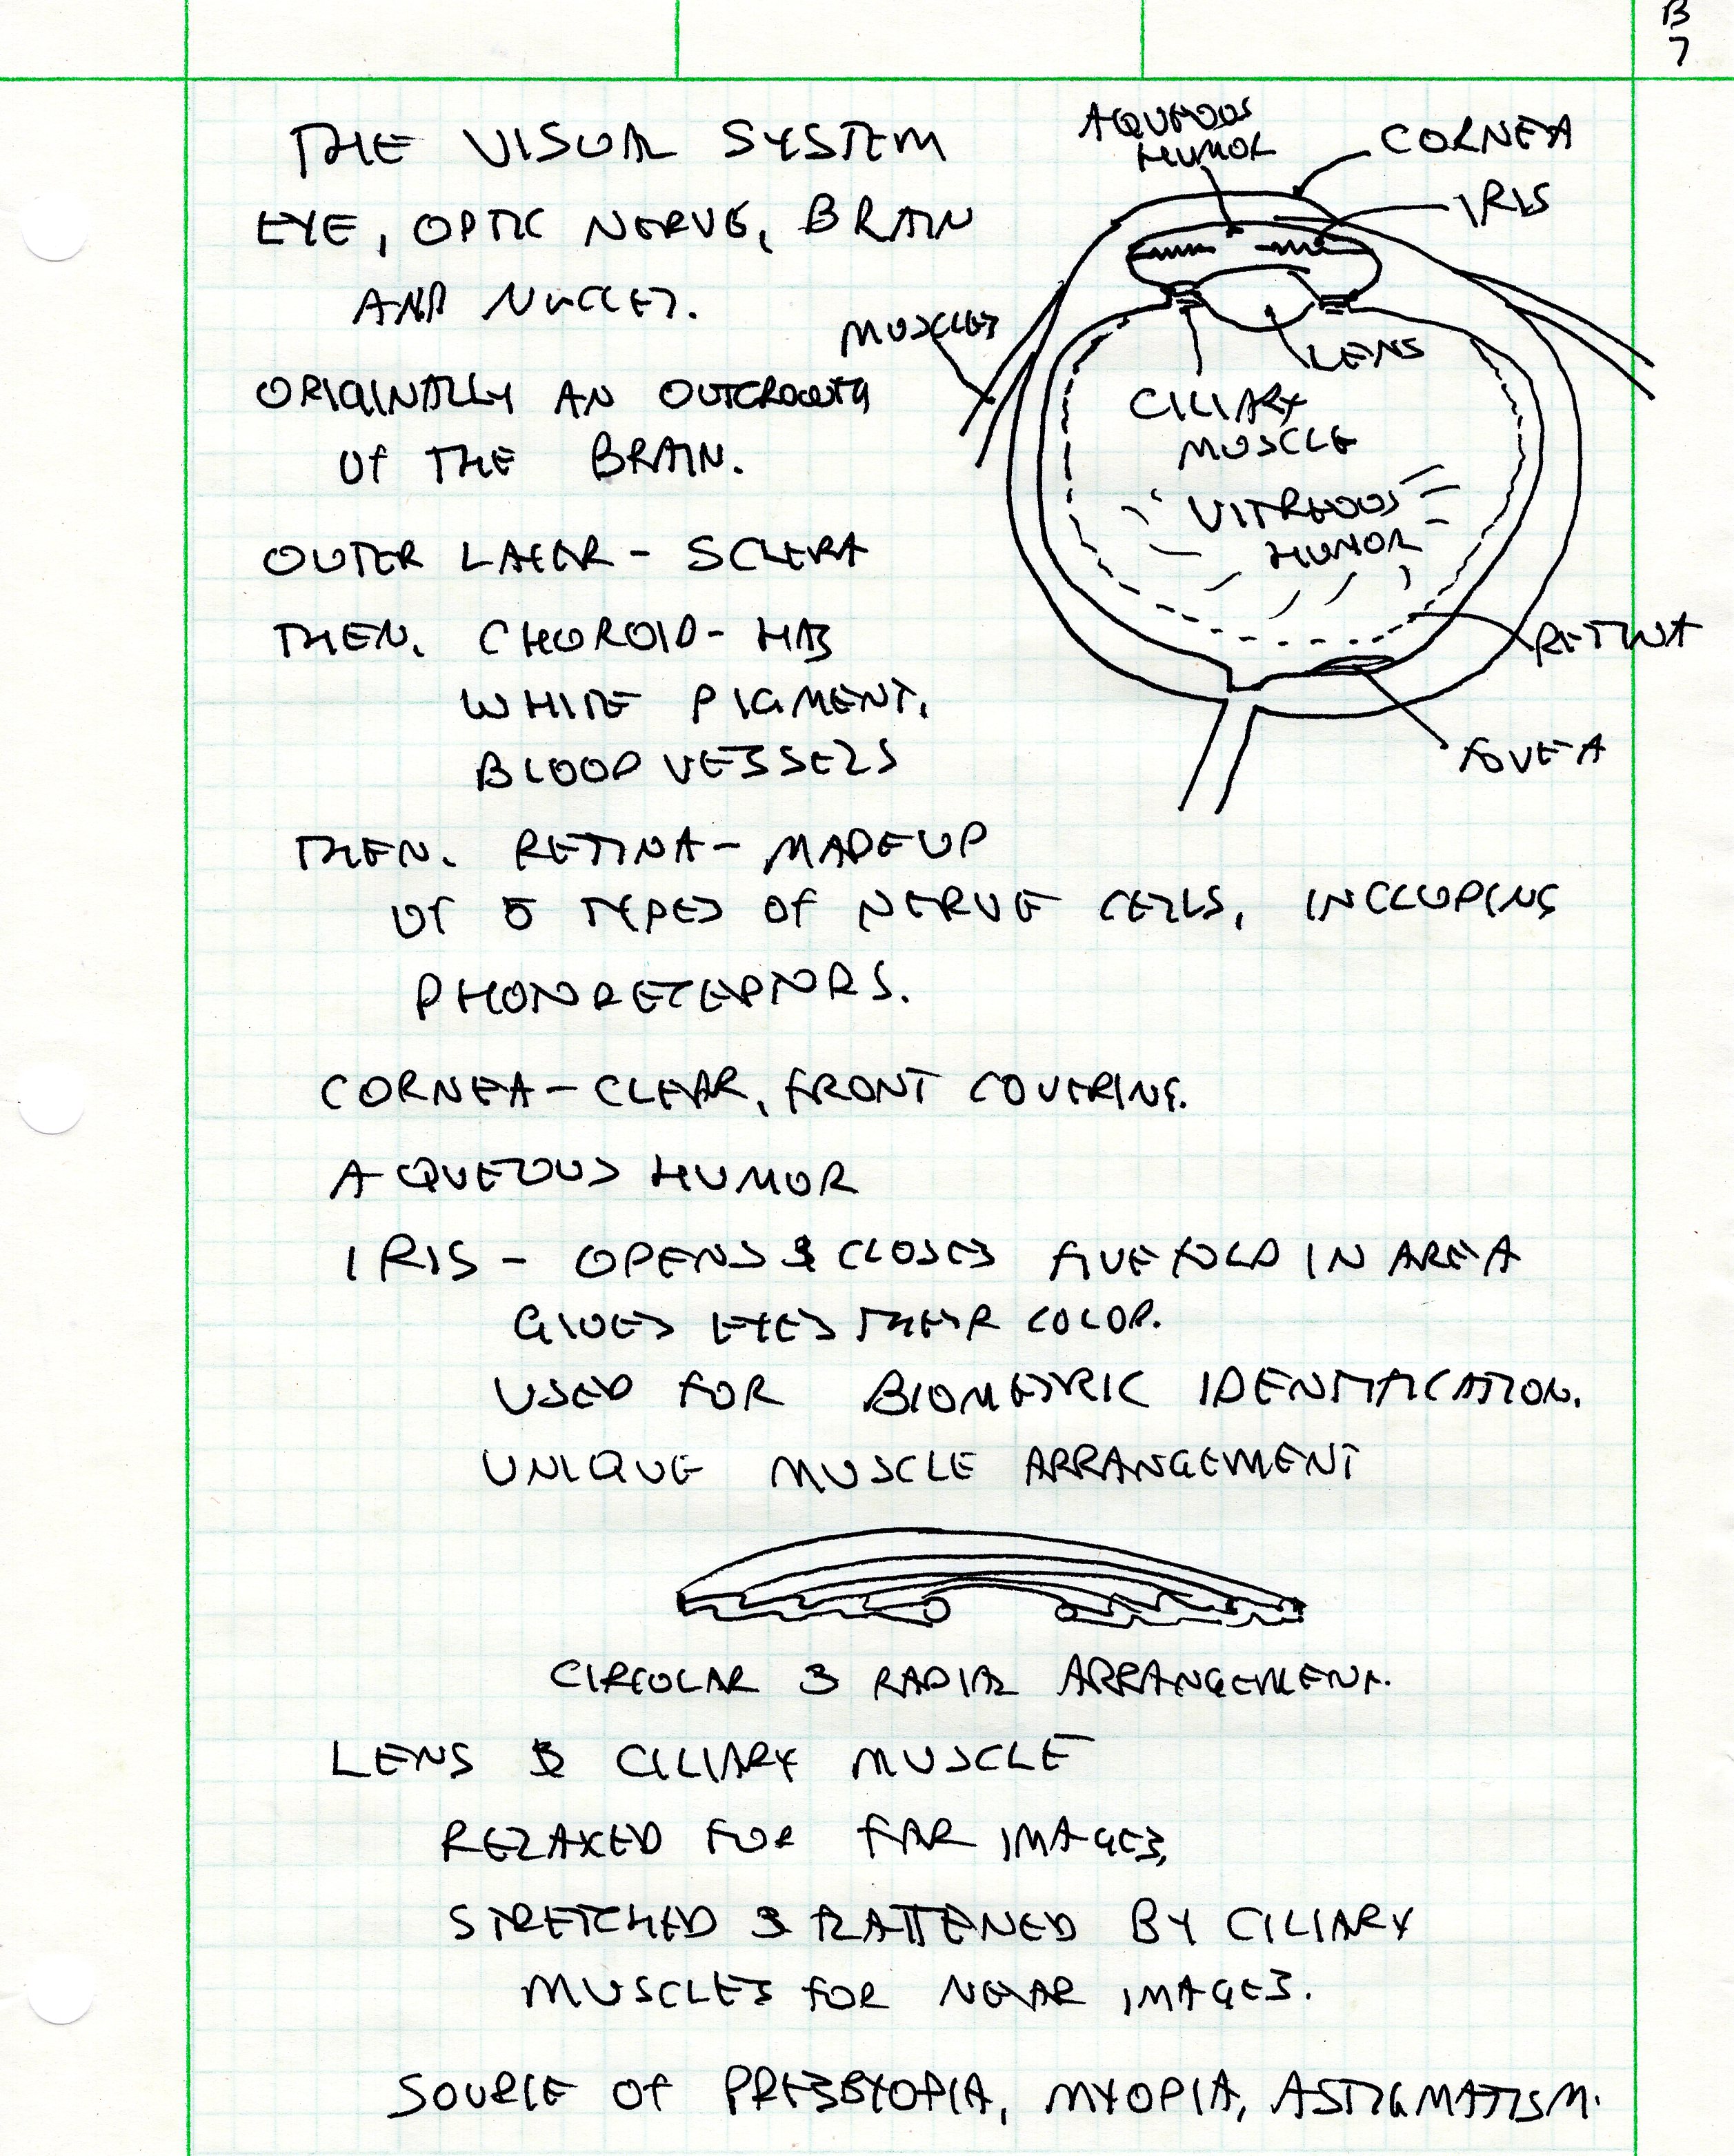 B
7
THE VISUAL SYSTEM
EYE, OPTIC NERVE, BRAIN
AND NUCLEI.
ORIGINALLY AN OUTGROWTH
OF THE BRAIN.
OUTER LAYER - SCLERA
THEN. CHOROID - HAS
WHITE PIGMENT,
BLOOD VESSELS
THEN. RETINA - MADE UP
OF 5 TYPES OF NERVE CELLS, INCLUDING
PHOTORECEPTORS.
AQUEOUS
HUMOR
CORNEA
IRIS
MUSCLES
LENS
CILIARY
MUSCLE
VITREOUS
HUMOR
RETINA
FOVEA
CORNEA - CLEAR, FRONT COVERING.
AQUEOUS HUMOR
IRIS - OPENS & CLOSES FIVE FOLD IN AREA
GIVES EYES THEIR COLOR.
USED FOR BIOMETRIC IDENTIFICATION.
UNIQUE MUSCLE ARRANGEMENT
CIRCULAR & RADIAL ARRANGEMENT.
LENS & CILIARY MUSCLE
RELAXED FOR FAR IMAGES,
STRETCHED & FLATTENED BY CILIARY
MUSCLES FOR NEAR IMAGES.
SOURCE OF PRESBYOPIA, MYOPIA, ASTIGMATISM.